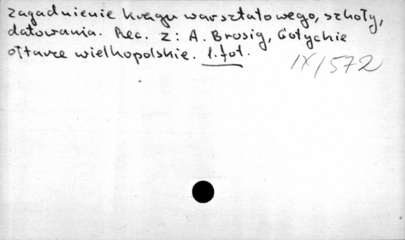 zagadnienie kręgu warsztatowego, szkoły,
datowania. Rec. z: A. Brosig, Gotyckie
ołtarze wielkopolskie. 1 fot.
IX/572